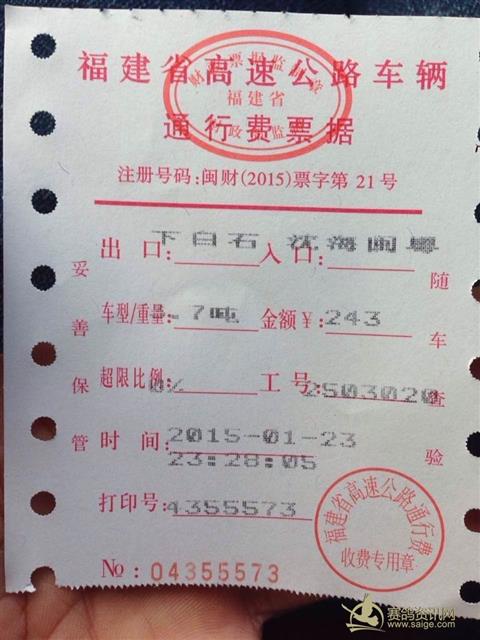 福建省高速公路车辆
福建省
通行费票据
注册号码:闽财(2015)票字第 21号
出口: 下白石 入口: 沈海闽粤
车型/重量: .7吨 金额￥: 243
超限比例: 0% 工号: 2503020
时间: 2015-01-23
23:28:05
打印号: 4355573
№: 04355573
妥善保管
随车查验
福建省高速公路通行费
收费专用章
赛鸽资讯网
www.saige.com